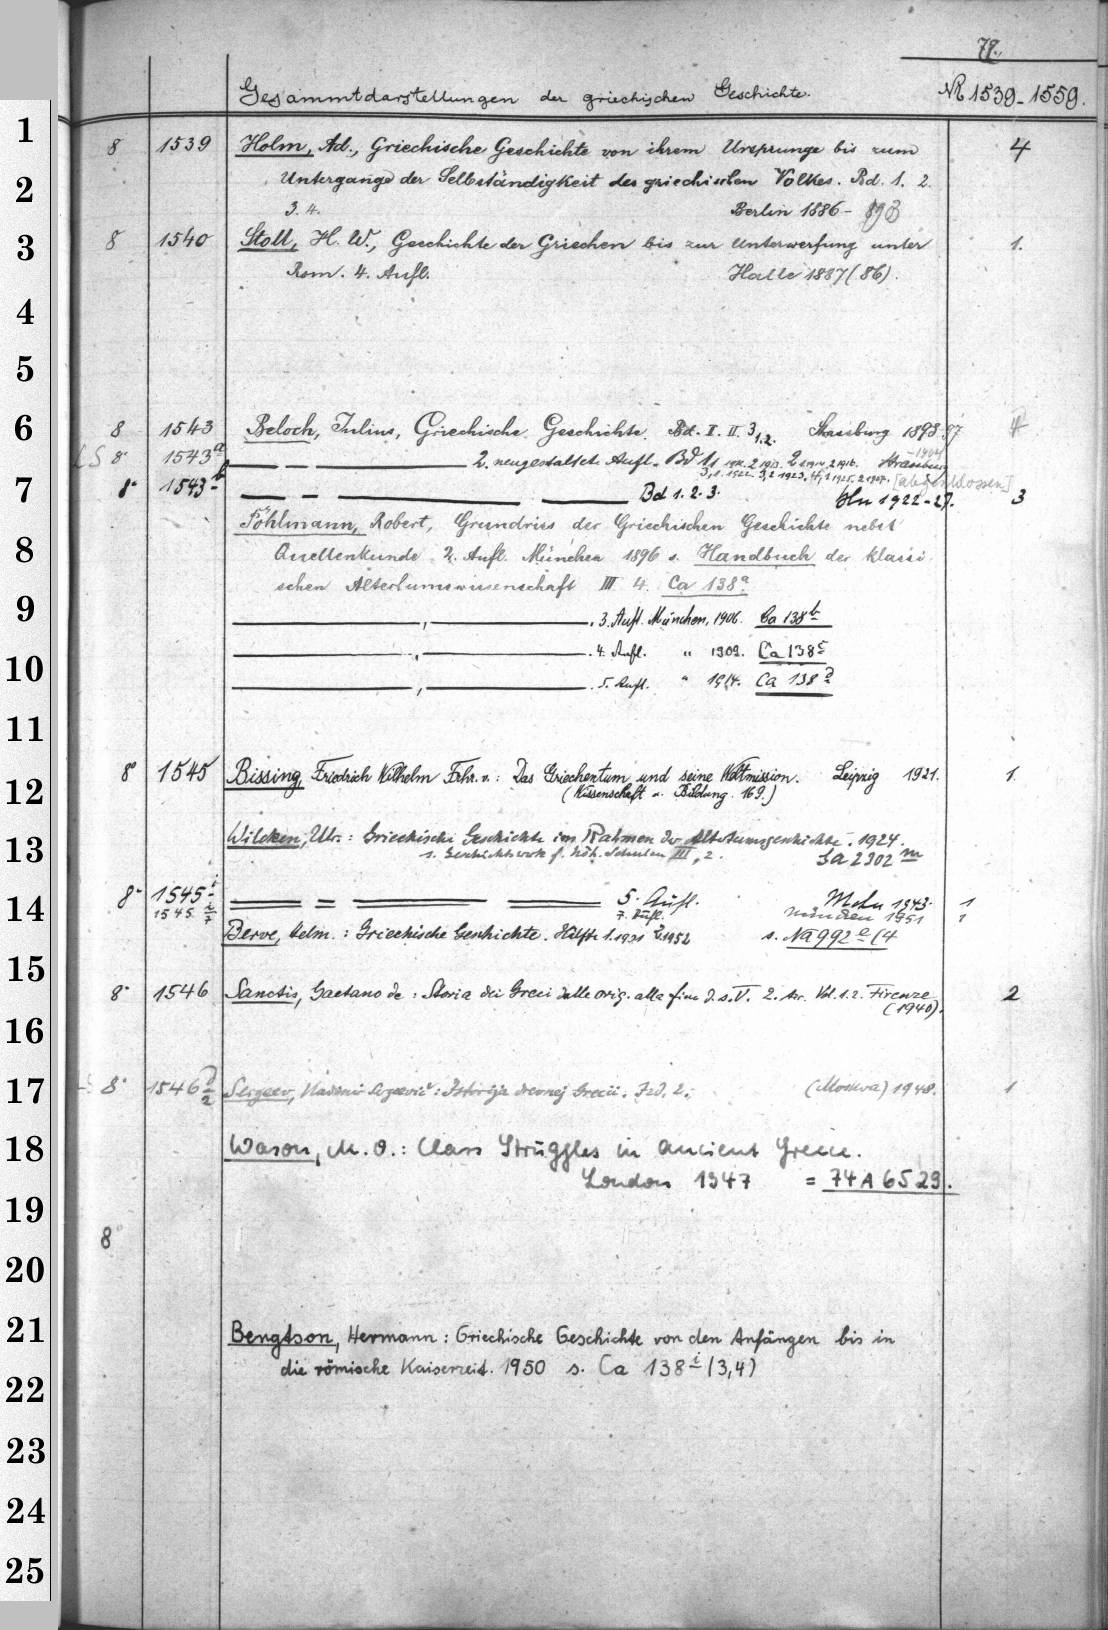 79.
Gesammtdarstellungen der griechischen Geschichte.
NR 1539-1559.
1
8 1539 Holm, Ad., Griechische Geschichte von ihrem Ursprunge bis zum 4
2
Untergange der Selbständigkeit des griechischen Volkes. Bd. 1. 2.
3. 4. Berlin 1886-893
3
8 1540 Stoll, H. W., Geschichte der Griechen bis zur Unterwerfung unter 1.
Rom. 4. Aufl. Halle 1887(86).
4
5
6
8 1543 Beloch, Julius, Griechische Geschichte. Bd. I. II. 3 1.2. Strassburg 1893-97 4
-1904
LS 8° 1543a — — — 2. neugestaltete Aufl. Bd 1,1 1912. 2 1913. 2 1 1914, 2 1916. Strassburg
3,1. 1922. 3,2 1923. 4,1 1925. 2 1927. [abgeschlossen]
7
8° 1543b — — — — Bd 1. 2. 3. Bln 1922-27. 3
Pöhlmann, Robert, Grundriss der Griechischen Geschichte nebst
8
Quellenkunde 2. Aufl. München 1896 s. Handbuch der klassi-
schen Altertumswissenschaft III 4. Ca 138a.
9
—, —. 3. Aufl. München, 1906. Ca 138b
10
—. —. 4. Aufl. " 1909. Ca 138c
—, —. 5. Aufl. " 1914. Ca 138d
11
12
8° 1545 Bissing, Friedrich Wilhelm Frhr. v.: Das Griechentum und seine Weltmission. Leipzig 1921. 1.
(Wissenschaft u. Bildung. 169.)
13
Wilcken, Ulr.: Griechische Geschichte im Rahmen der Altertumsgeschichte. 1924.
s. Geschichtswerk f. höh. Schulen III, 2. Sa 2302m
14
8° 1545i — — — — 5. Aufl. Mchn 1943. 1
1545 7. Aufl. München 1951 1
Berve, Helm.: Griechische Geschichte. Hälfte 1. 1931 2. 1952 s. Na 992e(4
15
8° 1546 Sanctis, Gaetano de: Storia dei Greci dalle orig. alla fine d. s. V. 2. Vol. 1. 2. Firenze 2
(1940).
16
17
8° 1546 Sergeev, Vladimir Sergeevič: Istorija drevnej Grecii. Izd. 2. (Moskva) 1948. 1
18
Wason, M. O.: Class Struggles in ancient Greece.
London 1947 = 74 A 6529.
19
8°
20
21
Bengtson, Hermann: Griechische Geschichte von den Anfängen bis in
die römische Kaiserzeit. 1950 s. Ca 138i(3,4)
22
23
24
25